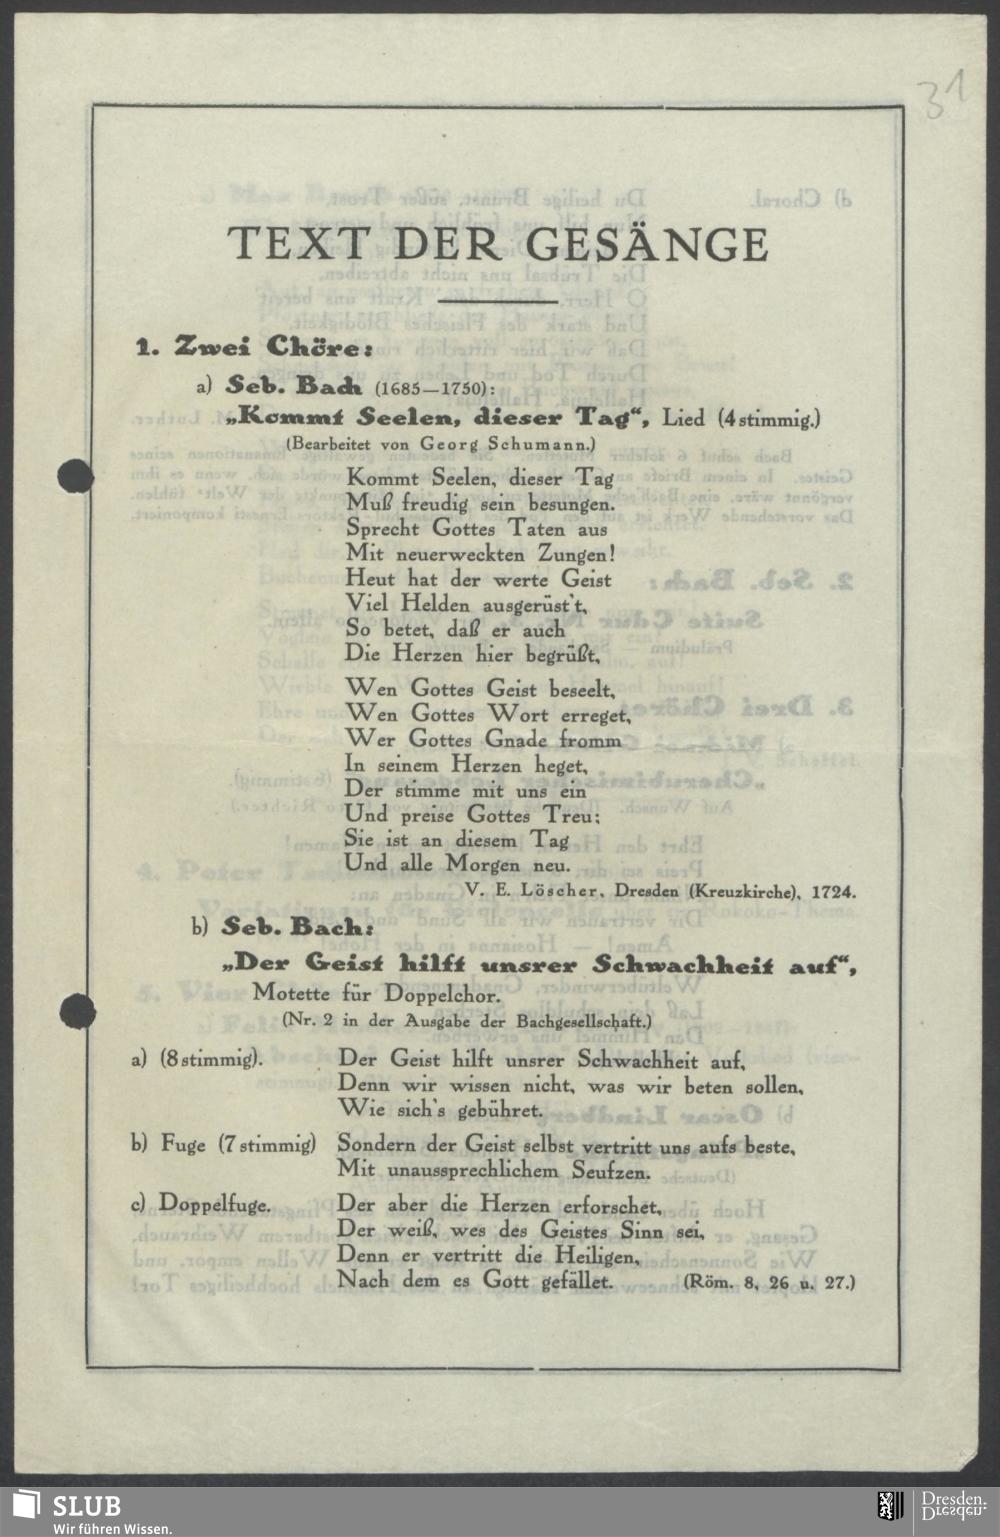 31
TEXT DER GESÄNGE
1. Zwei Chöre:
a) Seb. Bach (1685—1750):
„Kommt Seelen, dieser Tag“, Lied (4stimmig.)
(Bearbeitet von Georg Schumann.)
Kommt Seelen, dieser Tag
Muß freudig sein besungen.
Sprecht Gottes Taten aus
Mit neuerweckten Zungen!
Heut hat der werte Geist
Viel Helden ausgerüst't,
So betet, daß er auch
Die Herzen hier begrüßt,
Wen Gottes Geist beseelt,
Wen Gottes Wort erreget,
Wer Gottes Gnade fromm
In seinem Herzen heget,
Der stimme mit uns ein
Und preise Gottes Treu;
Sie ist an diesem Tag
Und alle Morgen neu.
V. E. Löscher, Dresden (Kreuzkirche), 1724.
b) Seb. Bach:
„Der Geist hilft unsrer Schwachheit auf“,
Motette für Doppelchor.
(Nr. 2 in der Ausgabe der Bachgesellschaft.)
a) (8stimmig). Der Geist hilft unsrer Schwachheit auf,
Denn wir wissen nicht, was wir beten sollen,
Wie sich's gebühret.
b) Fuge (7stimmig) Sondern der Geist selbst vertritt uns aufs beste,
Mit unaussprechlichem Seufzen.
c) Doppelfuge. Der aber die Herzen erforschet,
Der weiß, wes des Geistes Sinn sei,
Denn er vertritt die Heiligen,
Nach dem es Gott gefället. (Röm. 8, 26 u. 27.)
SLUB
Wir führen Wissen.
Dresden.
Dresden.